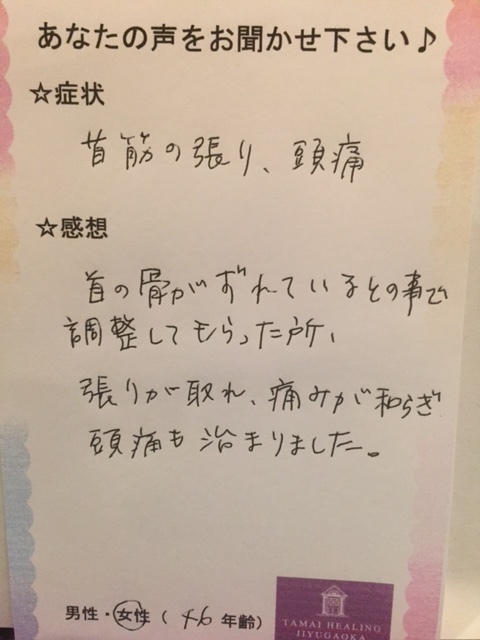 あなたの声をお聞かせ下さい♪
☆症状
首筋の張り、頭痛
☆感想
首の骨がずれているとの事で
調整してもらった所、
張りが取れ、痛みが和らぎ
頭痛も治まりました。
男性・女性 ( 46 年齢)
TAMAI HEALING
JIYUGAOKA